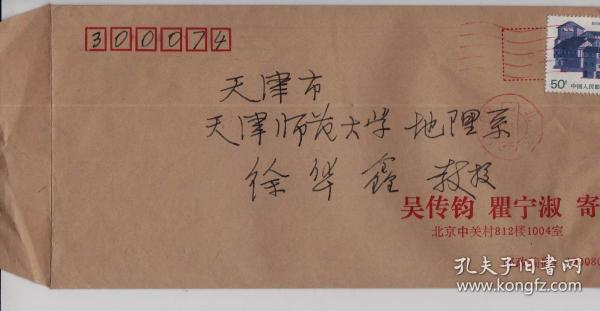 300074
50分
中国人民邮
天津市
天津师范大学地理系
徐华鑫 教授
吴传钧 瞿宁淑 寄
北京中关村812楼1004室
孔夫子旧书网
www.kongfz.com